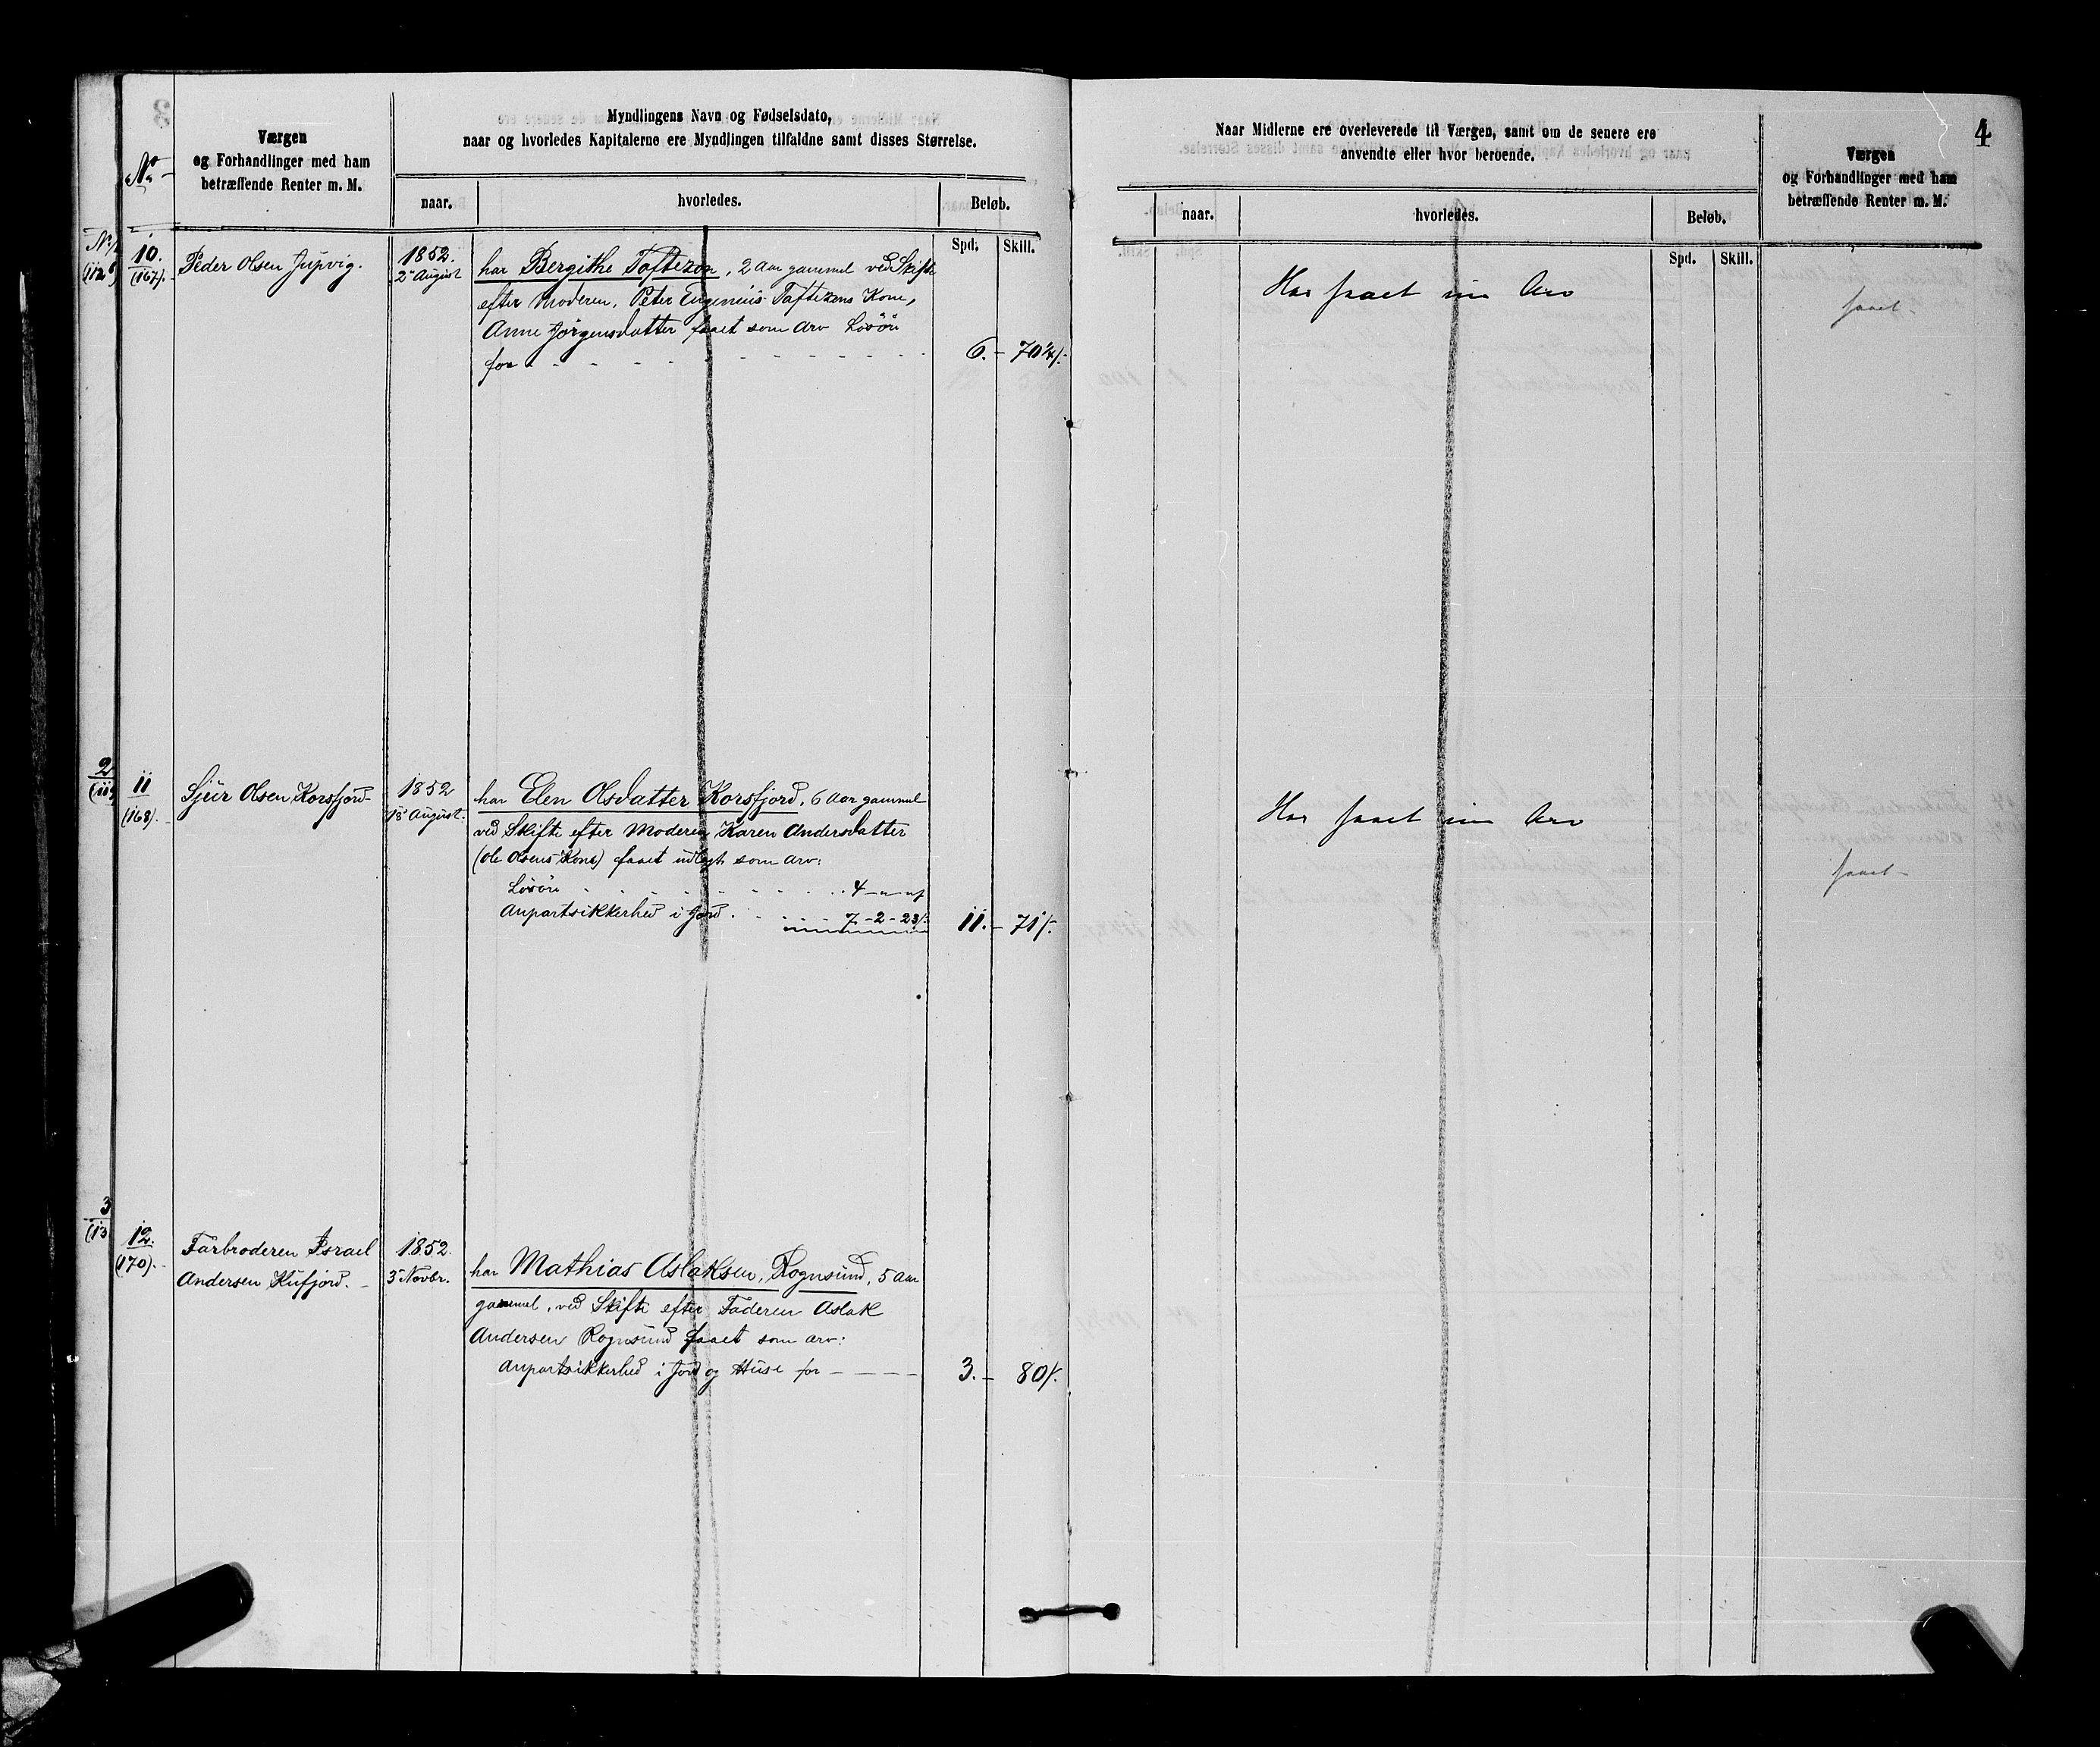 4
No
Værgen
og Forhandlinger med ham
betræffende Renter m. M.
Myndlingens Navn og Fødselsdato,
naar og hvorledes Kapitalerne ere Myndlingen tilfaldne samt disses Størrelse.
naar.
hvorledes.
Beløb.
Spd.
Skill.
10.
(167).
Peder Olsen Jupvig.
1852.
2 August
har Bergithe Toftezon, 2 Aar gammel ved Skifte
efter Moderen, Peter Eugenius Toftezens Kone,
Anne Jörgensdatter faaet som Arv Lösöre
for
6.- 70¼/-
11
(168).
Sjur Olsen Korsfjord
1852
18 August.
har Elen Olsdatter Korsfjord, 6 Aar gammel
ved Skifte efter Moderen Karen Andersdatter
(Ole Olsens Kone) faaet udlagt som Arv:
Lösöre 4
Anpartsikkerhed i Jord. 7-2-23/-
11.- 71/-
12.
(170).
Farbroderen Israel
Andersen Kufjord.
1852.
3 Novbr.
har Mathias Aslaksen, Rognsund, 5 Aar
gammel, ved Skifte efter Faderen Aslak
Andersen Rognsund faaet som Arv:
Anpartsikkerhed i Jord og Huse for
3.- 80/-
Naar Midlerne ere overleverede til Værgen, samt om de senere ere
anvendte eller hvor beroende.
Værgen
og Forhandlinger med ham
betræffende Renter m. M.
naar.
hvorledes.
Beløb.
Spd.
Skill.
Har faaet sin Arv
faaet
Har faaet sin Arv
faaet